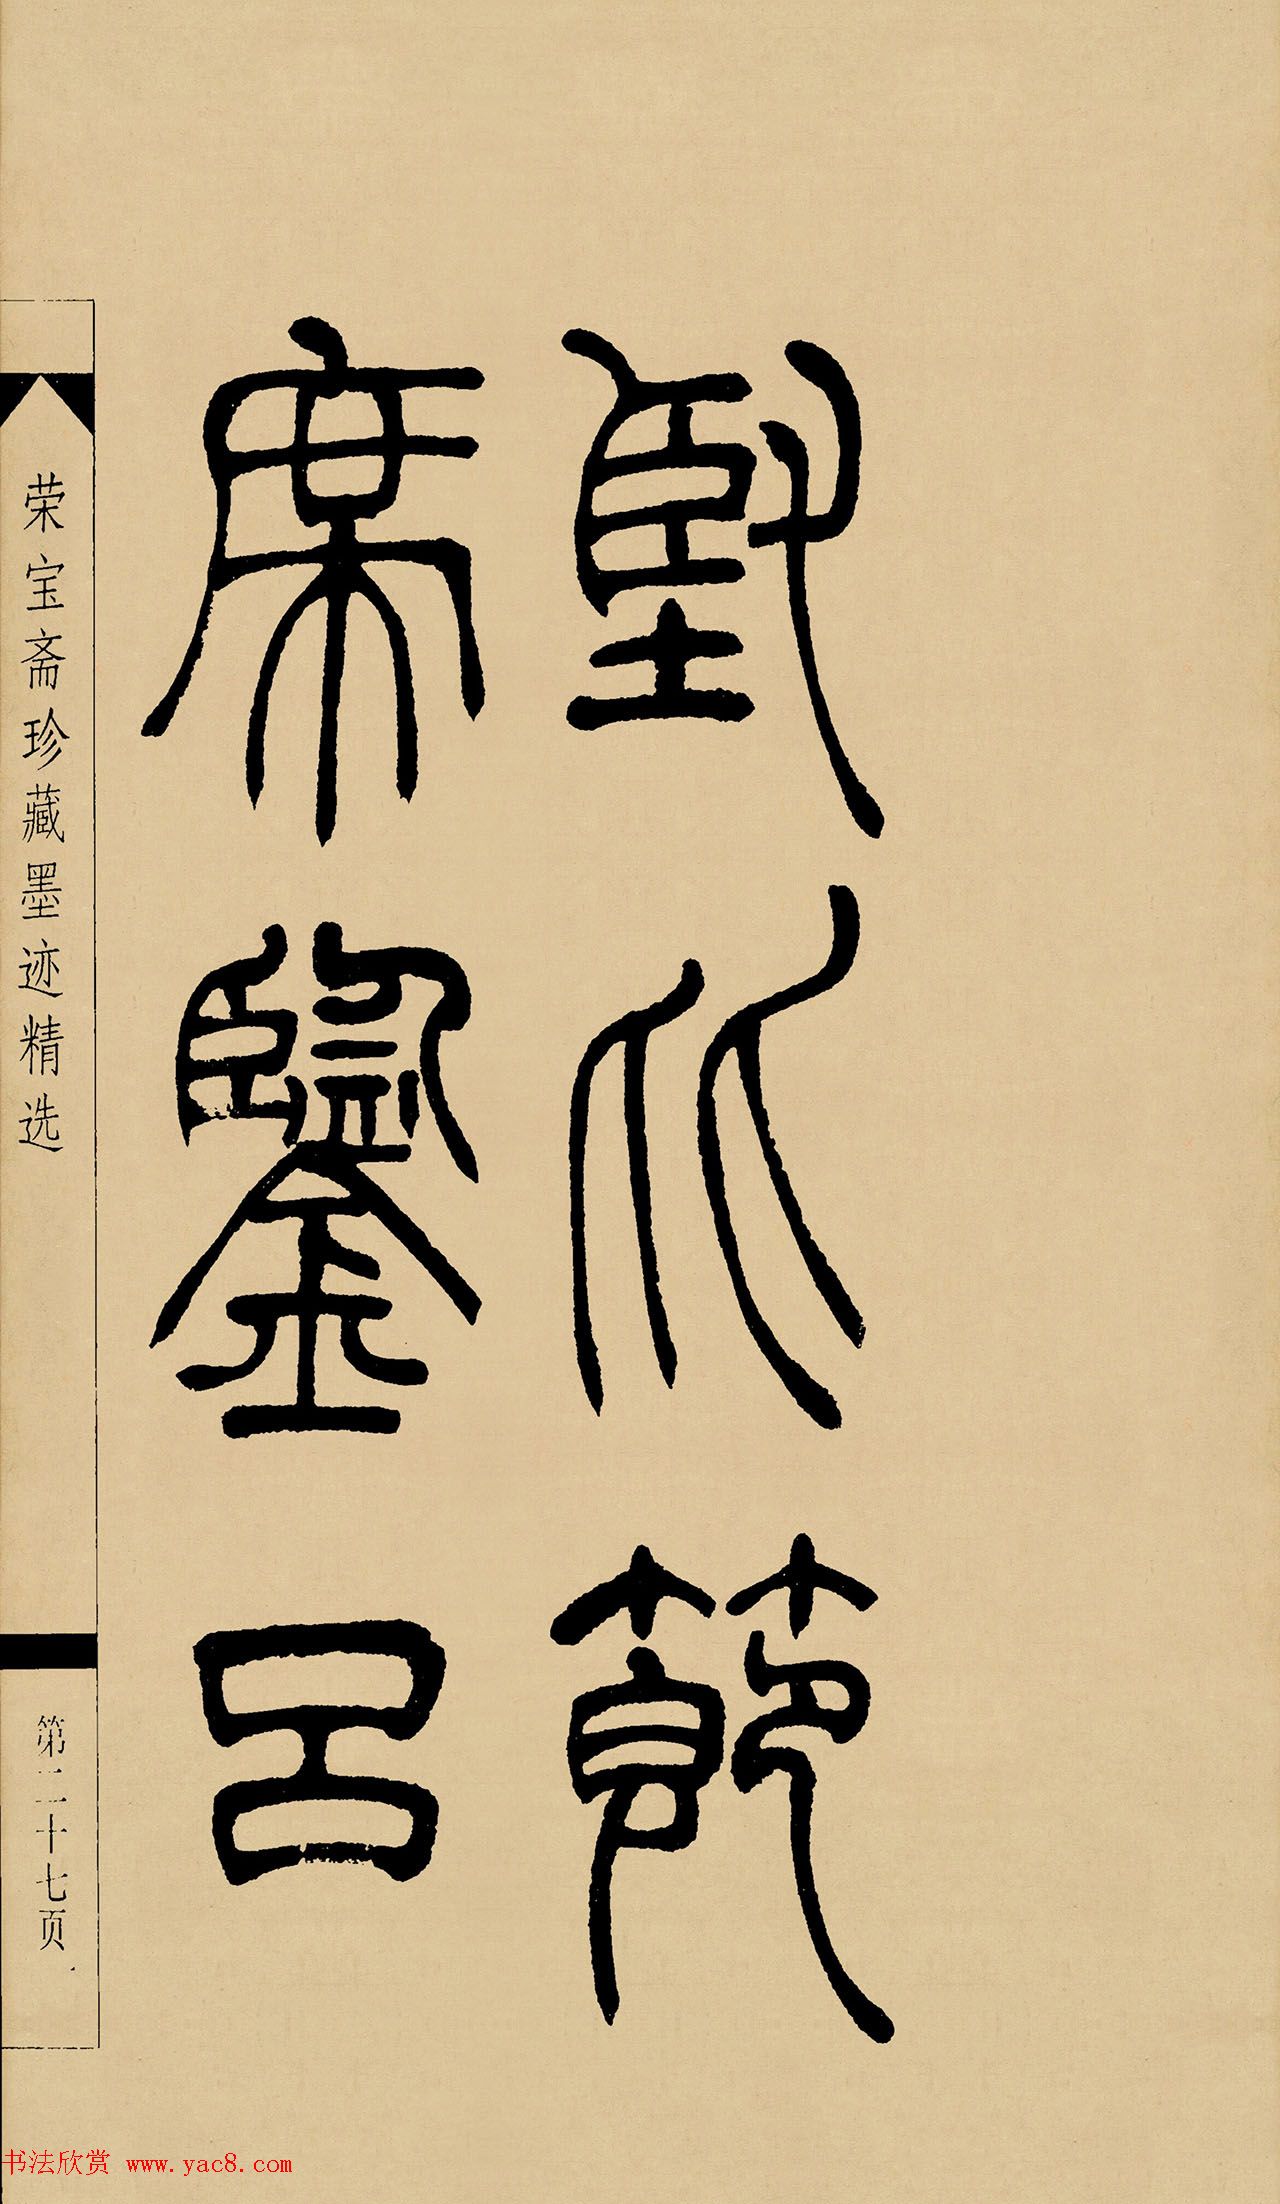 堅节
庶鑒呂
荣宝斋珍藏墨迹精选
第二十七页
书法欣赏 www.yac8.com